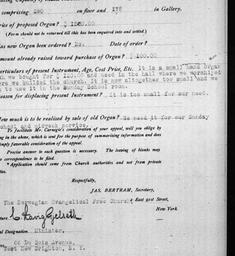 comprising 280 on floor and 175 in Gallery.
of proposed Organ? $
(Form should not be returned till this has been enquired into and settled.)
new Organ been ordered? No. Date of order?
amount already raised toward purchase of Organ? $
articulars of present Instrument, Age, Cost Price, Etc. It is a small Reed Organ
we bought for $ and used in the hall where we worshiped
we builded the church. It is now altogether too small but we
to use it in the Sunday School room.
reason for displacing present Instrument? It is too small for our need.
How much is to be realized by sale of old Organ? We need it for our Sunday
School and midweek service.
To facilitate Mr. Carnegie's consideration of your appeal, will you oblige by
in the above, which is sent for the purpose of summarizing information and does
imply favorable consideration of the appeal.
Precise answer to each question is necessary. The leaving of blanks may
correspondence to be filed.
Application should come from Church authorities and not from private
Respectfully,
JAS. BERTRAM, Secretary,
East 91st Street,
New York
The Norwegian Evangelical Free Church
Official Designation. Minister.
Bois Avenue,
West New Brighton, N. Y.